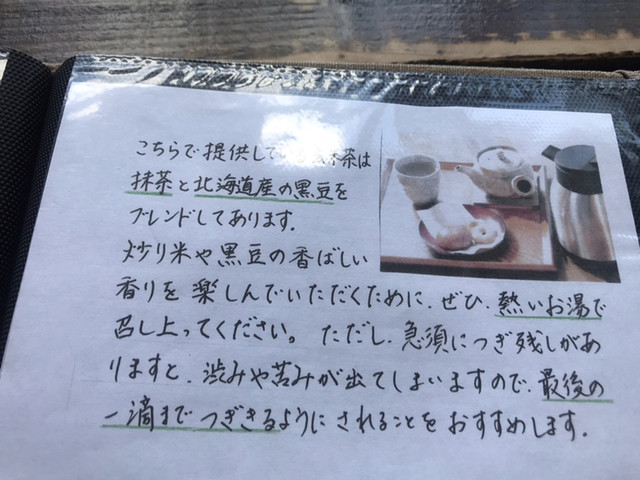 こちらで提供して 茶は
抹茶と北海道産の黒豆を
ブレンドしてあります。
炒り米や黒豆の香ばしい
香りを楽しんでいただくために、ぜひ、熱いお湯で
召し上ってください。ただし、急須につぎ残しがあ
りますと、渋みや苦みが出てしまいますので、最後の
一滴までつぎきるようにされることをおすすめします。